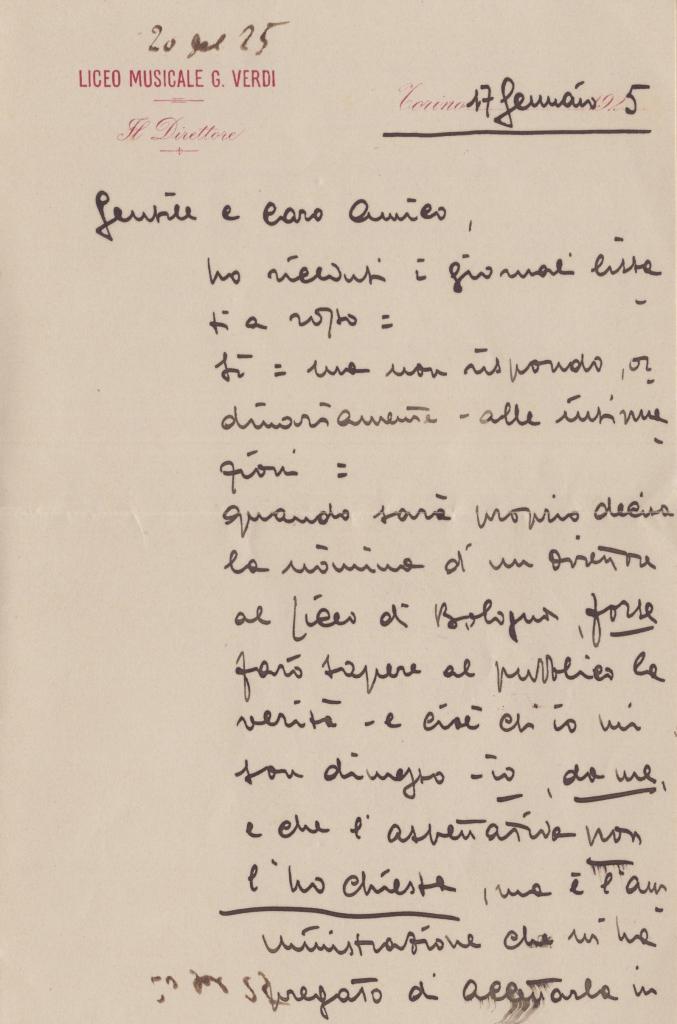 20 gen 25
LICEO MUSICALE G. VERDI
Il Direttore
Torino 17 Gennaio 1925
Gentile e caro Amico,
ho ricevuti i giornali lista
ti a rosso =
Sì = ma non rispondo, or
dinariamente - alle intima
zioni =
quando sarà proprio decisa
la nòmina d'un direttore
al Liceo di Bologna, forse
farò sapere al pubblico la
verità - e cioè ch'io mi
son dimesso - io, da me,
e che l'aspettativa non
l'ho chiesta, ma è l'am
ministrazione che mi ha
pregato di accettarla in